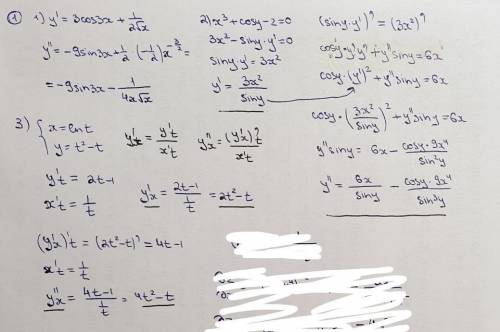 ① 1) y' = 3cos3x + 1/(2√x)
y'' = -9sin3x + 1/2 · (-1/2) x^(-3/2) =
= -9sin3x - 1/(4x√x)
2) x³ + cosy - 2 = 0
3x² - siny · y' = 0
siny · y' = 3x²
y' = 3x²/siny
(siny · y')' = (3x²)'
cosy · y' y' + y'' siny = 6x
cosy · (y')² + y'' siny = 6x
cosy · (3x²/siny)² + y'' siny = 6x
y'' siny = 6x - cosy · 9x⁴/sin²y
y'' = 6x/siny - cosy · 9x⁴/sin³y
3) { x = lnt
y = t² - t
y'x = y't/x't
y''x = (y'x)'t/x't
y't = 2t - 1
x't = 1/t
y'x = (2t-1)/(1/t) = 2t² - t
(y'x)'t = (2t² - t)' = 4t - 1
x't = 1/t
y''x = (4t-1)/(1/t) = 4t² - t